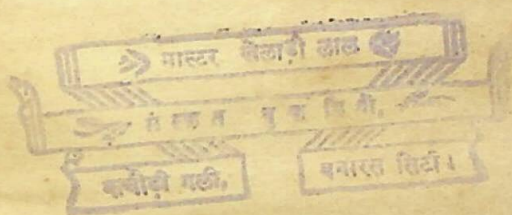 मास्टर खेलाड़ी लाल
संस्कृत बुक डिपो,
कचौड़ी गली,
बनारस सिटी।